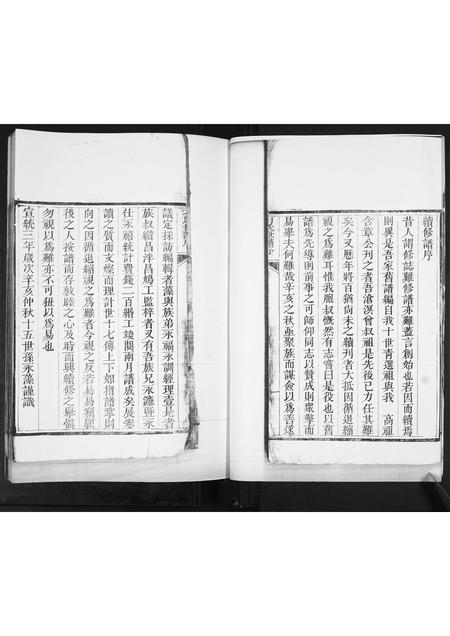 續修譜序
昔人謂修誌難修譜亦難蓋言創始也若因而續焉
則異是吾家舊譜編自我十世青選祖與我 高祖
含章公刊之者吾滄溟曾叔祖是先後已力任其難
矣今又歷年將百猶尚未之續刊者大抵因循退縮
視之為難耳惟我胞叔慨然有志嘗曰是役也以舊
譜為先導則前事之可師仰同志以贊成則眾擎而
易舉夫何難哉辛亥之秋亟聚族而謀僉以為善遂
議定採訪編輯者藻與族弟永福永訓經理壹是者
族叔纘昌泮昌鳩工監梓者又有吾族兄永譫暨永
仕永禧統計費錢二百緡工竣閱兩月譜成矣展卷
讀之質而文燦而理計世十七傳上下如指諸掌則
向之因循退縮視之為難者今視之反若易易爾願
後之人按譜而存敦睦之心及時而興續修之舉慎
勿視以為難亦不可狃以為易也
宣統三年歲次辛亥仲秋十五世孫永藻謹識